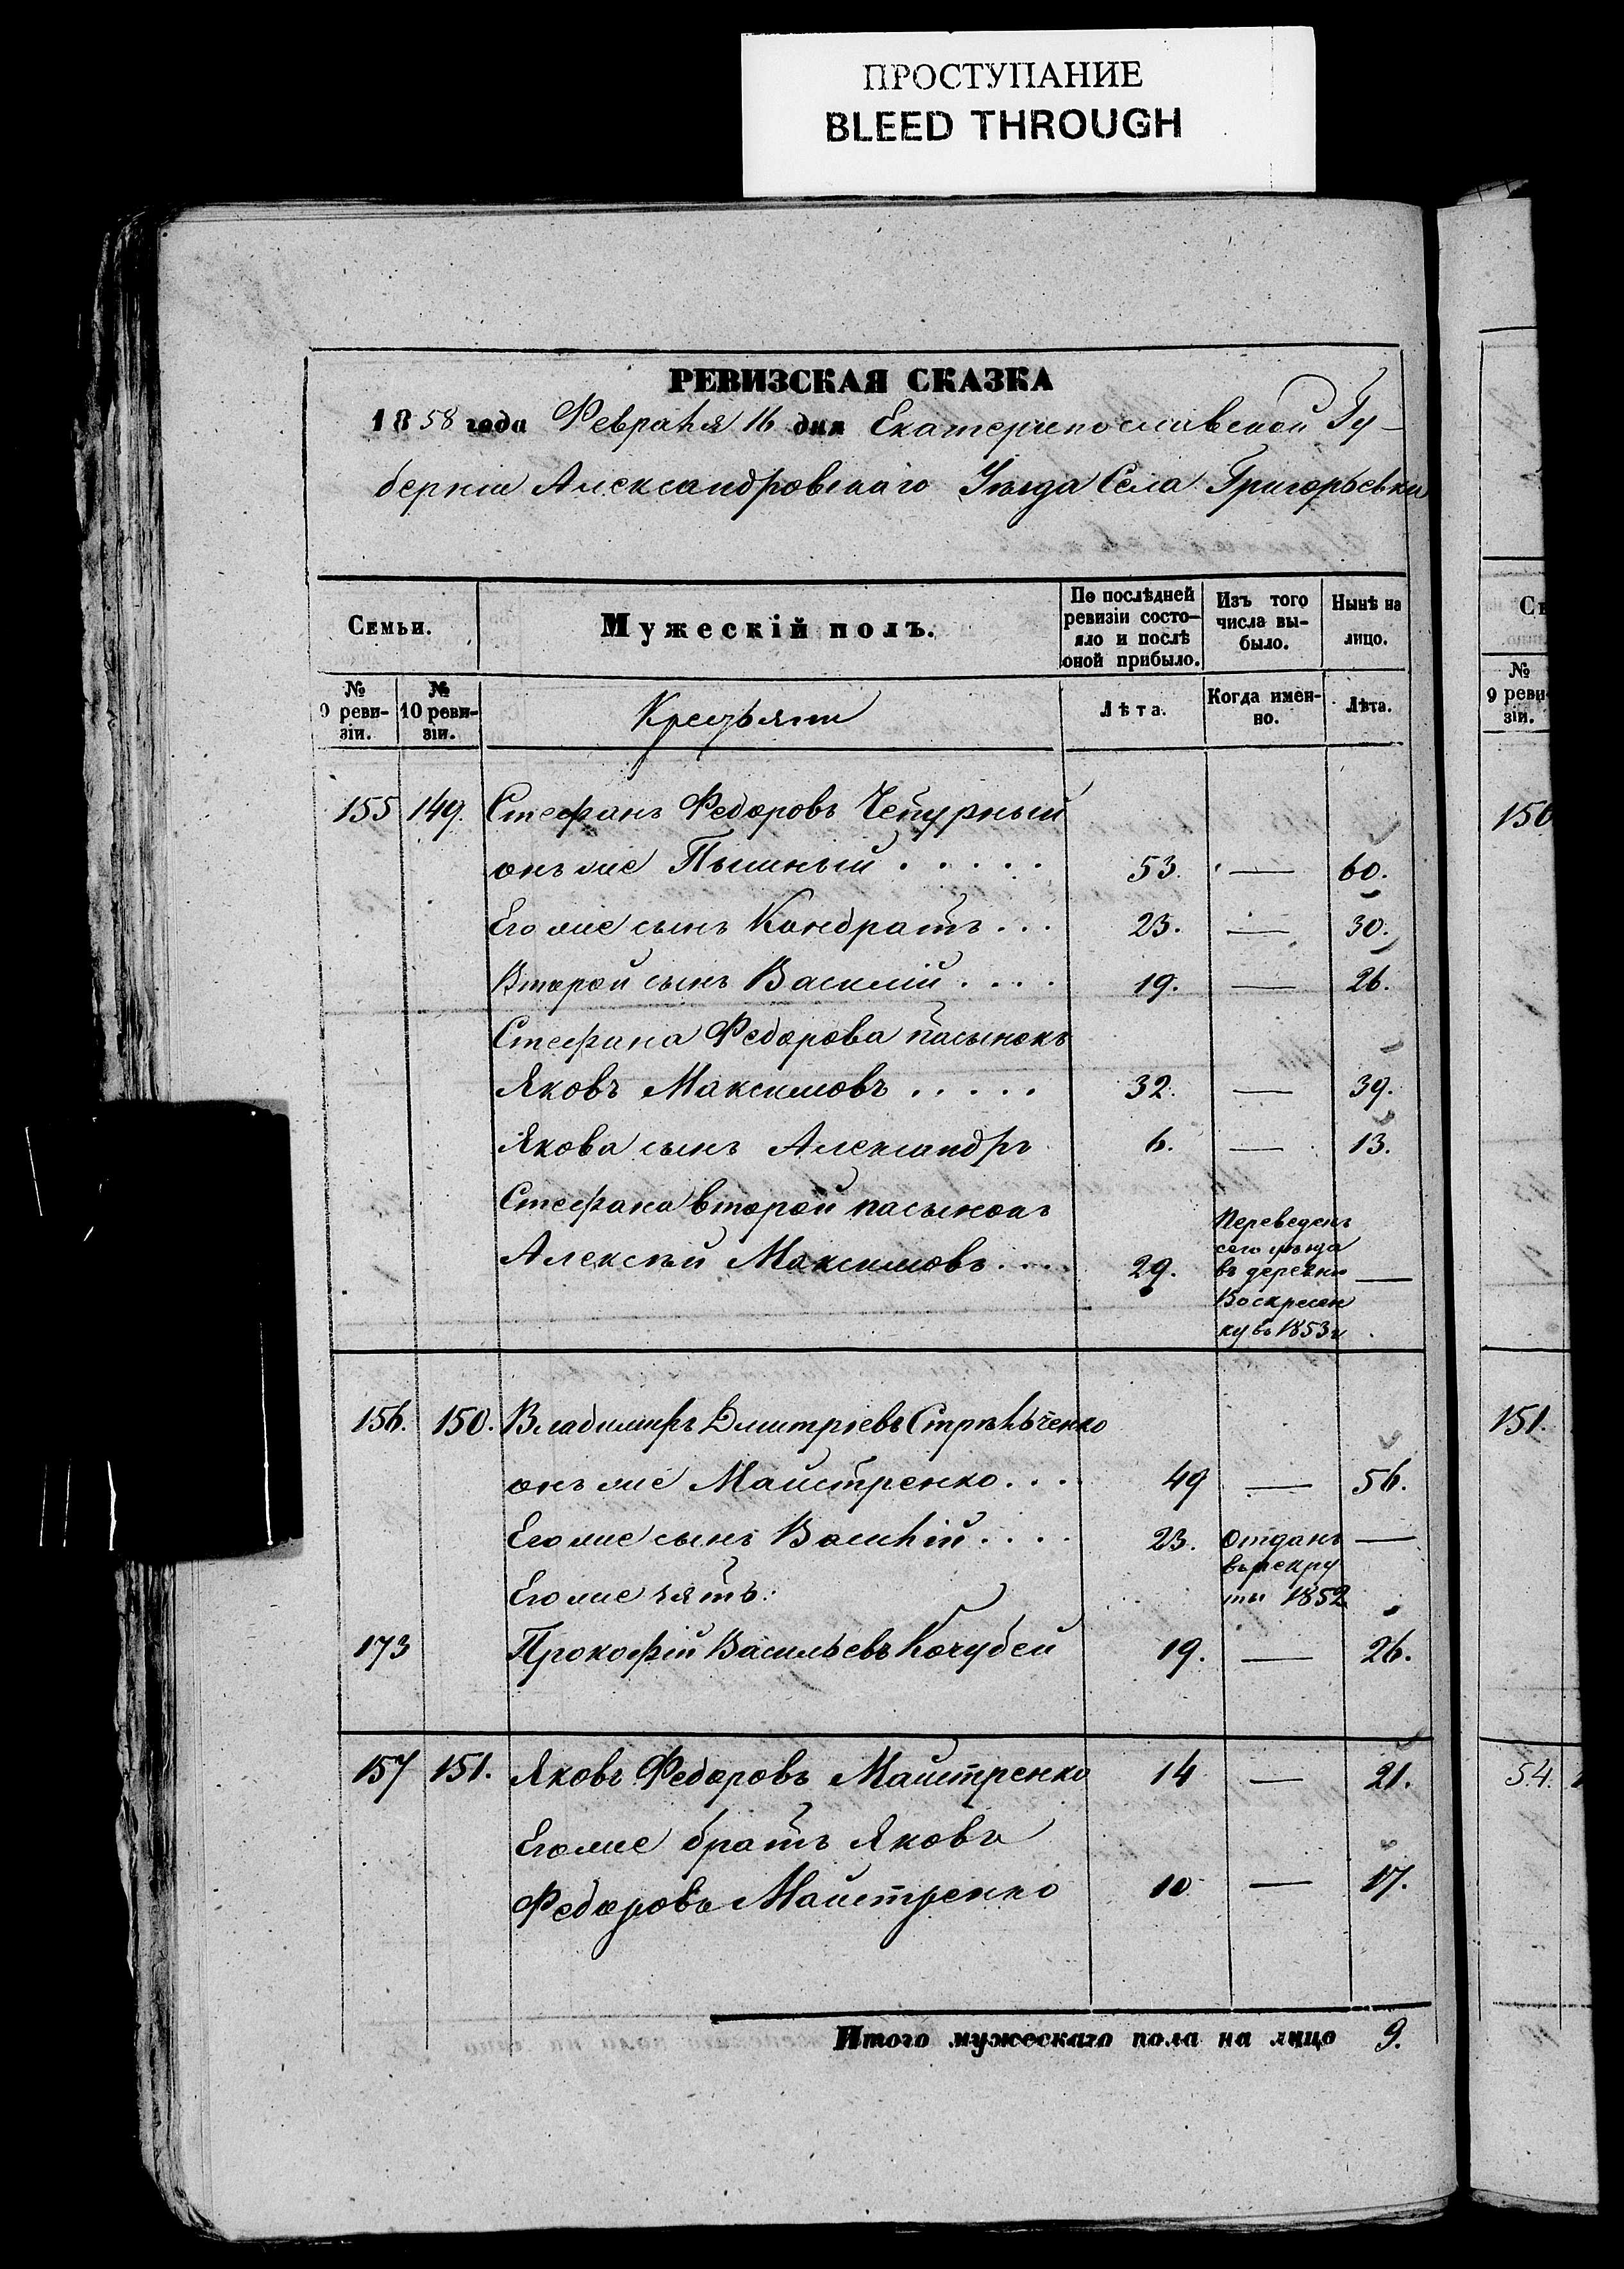 ПРОСТУПАНИЕ
BLEED THROUGH
РЕВИЗСКАЯ СКАЗКА
1858 года Февраля 16 дня Екатеринославской Гу-
берніи Александровскаго Уѣзда Села Григорьевки
Семьи.
Мужескій полъ.
По послѣдней ревизіи состо-
яло и послѣ оной прибыло.
Изъ того числа вы-
было.
Нынѣ на лицо.
№ 9 реви-
зіи.
№ 10 реви-
зіи.
Крестьяне
Лѣта.
Когда имен-
но.
Лѣта.
155 149. Стефанъ Федоровъ Чепурный
онъ же Пышный . . . . . 53. — 60.
Его же сынъ Кондратъ . . . 23. — 30.
Второй сынъ Василій . . . . 19. — 26.
Стефана Федорова пасынокъ
Яковъ Максимовъ . . . . . 32. — 39.
Якова сынъ Александръ 6. — 13.
Стефана второй пасынокъ
Алексѣй Максимовъ . . . . 29. —
Переведенъ
сего уѣзда
въ деревню
Воскресен
ку въ 1853 г
156. 150. Владимиръ Дмитріевъ Стрѣльченко
онъ же Маистренко . . . . 49 — 56.
Его же сынъ Василій . . . . 23. Отданъ —
въ рекру
ты 1852
Его же зять:
173 Прокофій Васильевъ Кочубей 19. — 26.
157 151. Яковъ Федоровъ Маистренко 14 — 21.
Его же братъ Яковъ
Федоровъ Маистренко 10 — 17.
Итого мужескаго пола на лицо 9.
№
9 реви
зіи.
151.
54.